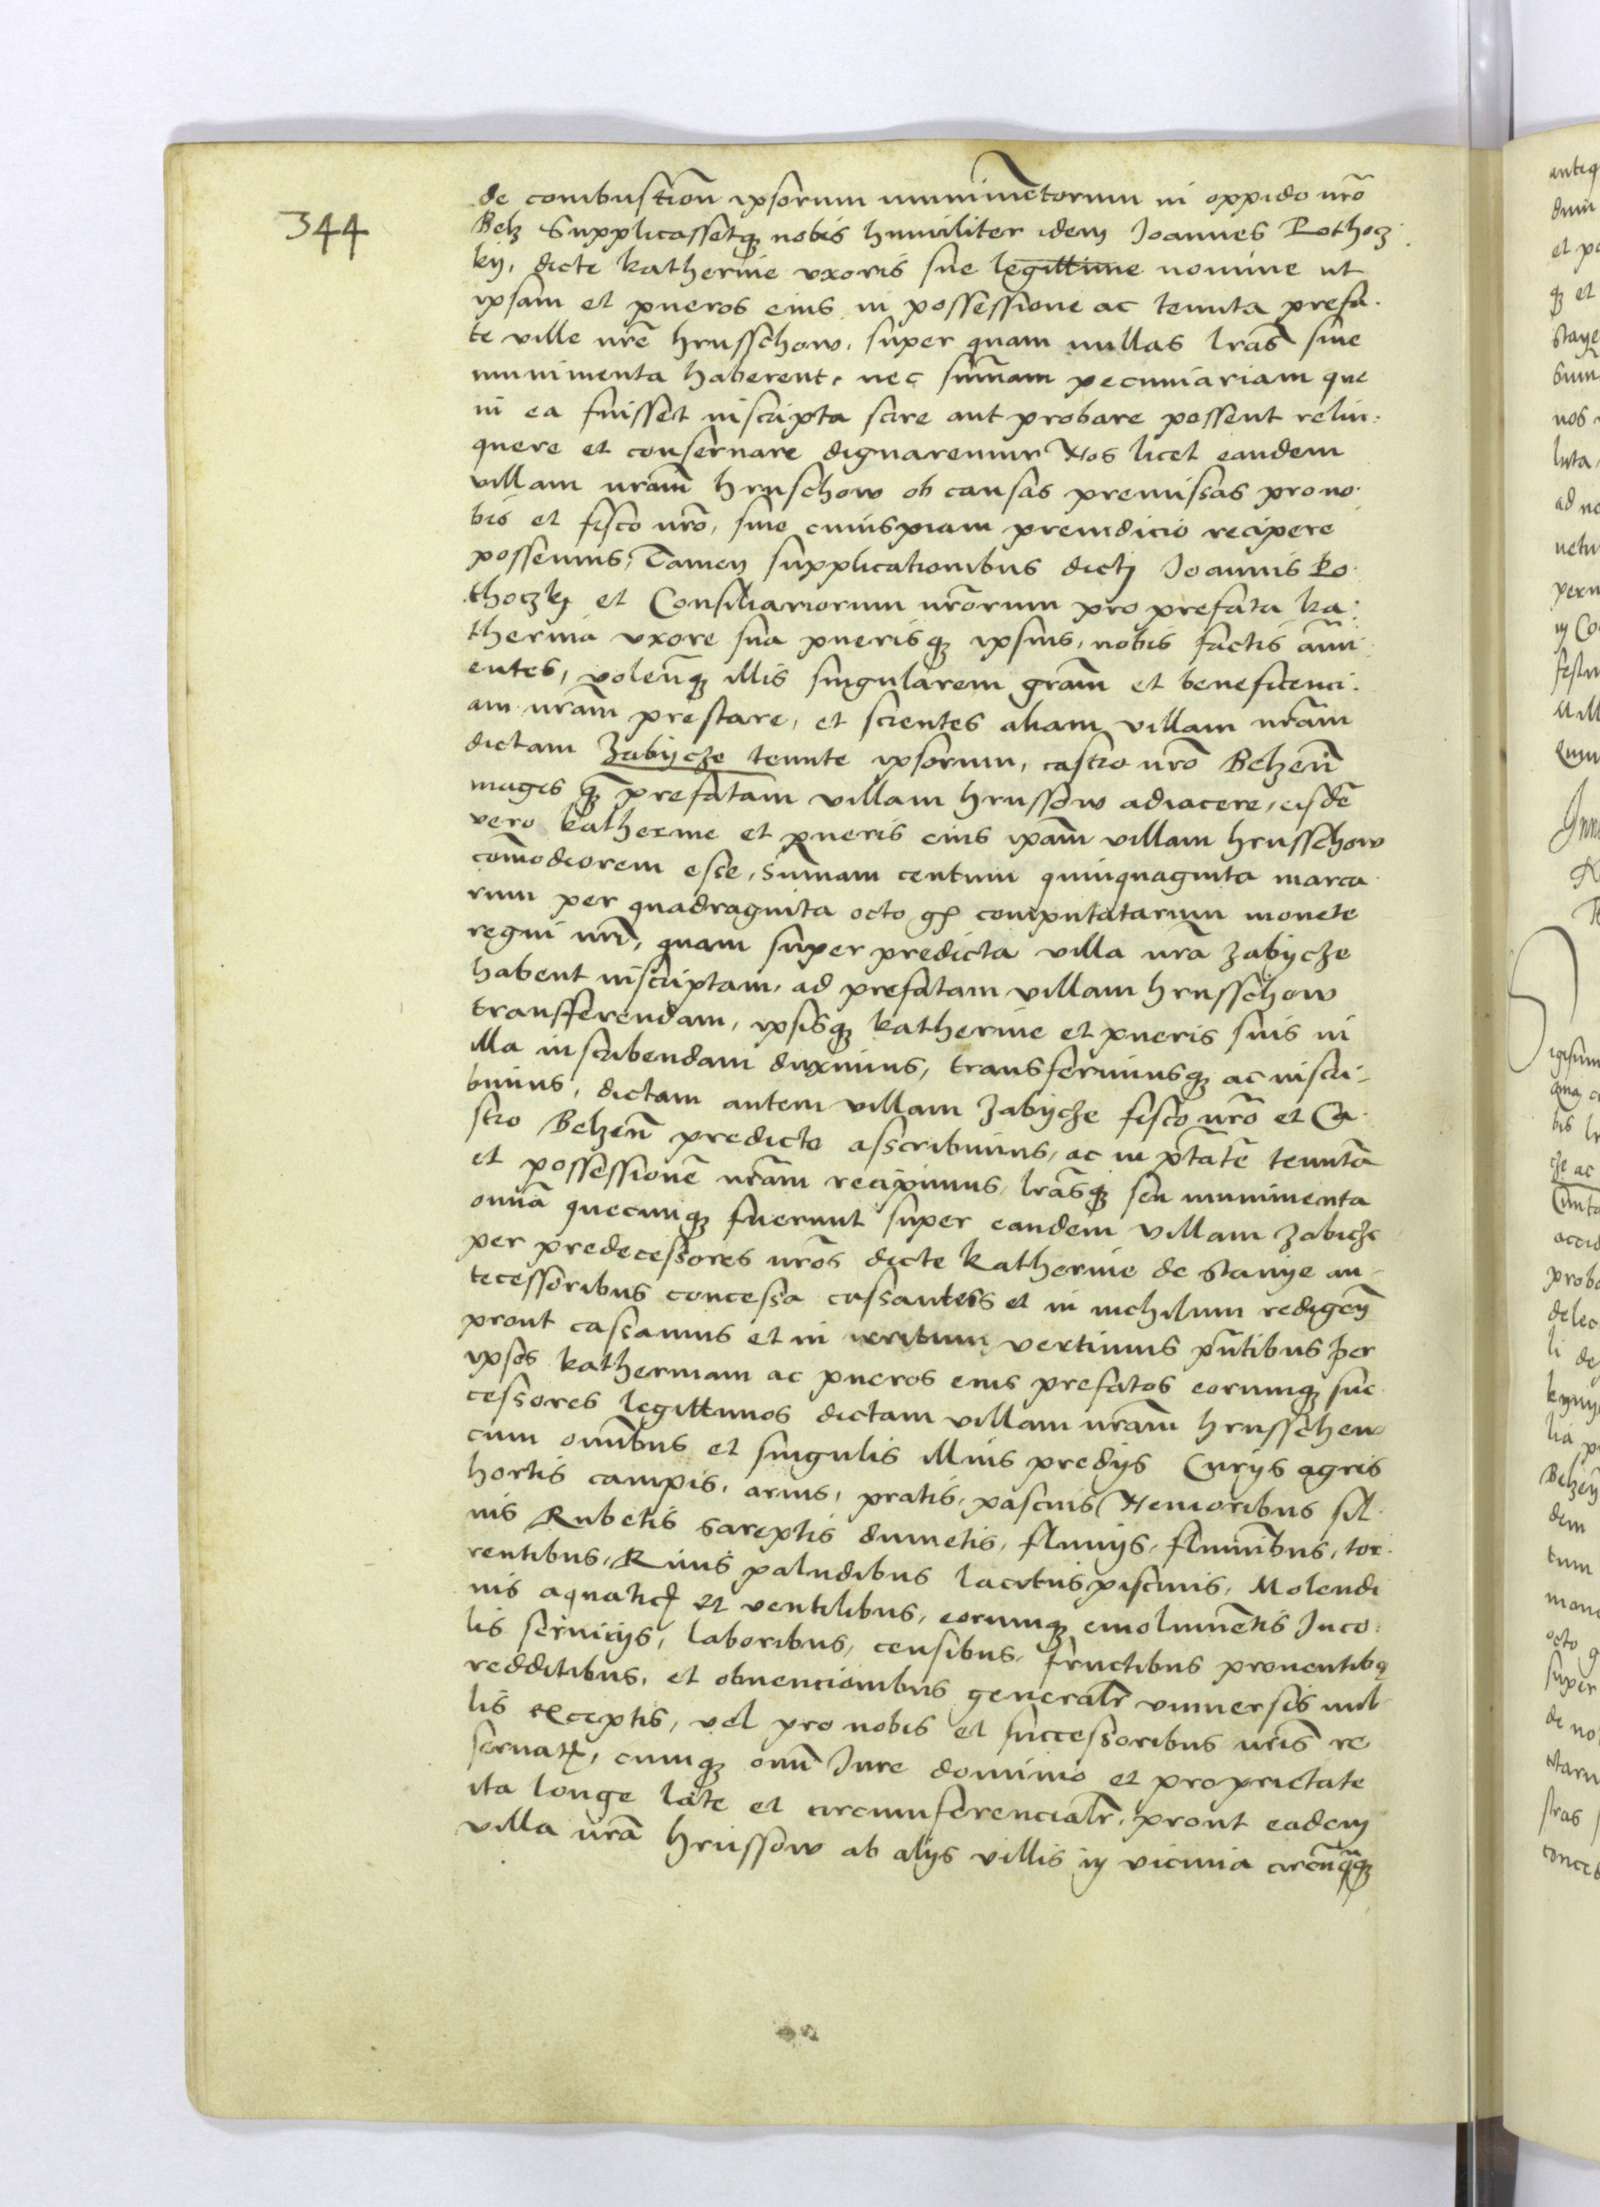 344
de combustiōn ipsorum munimētorum in oppido nrō
Belz Supplicassetqȝ nobis humiliter idem Joannes Pothocz
kij, dicte katherine vxoris sue legittime nomine ut
ipsam et pueros eius in possessione ac tenuta prefa.
te ville nrē hrusschow, super quam nullas lrās siue
munimenta haberent, nec sum̄am pecuniariam que
in ea fuisset inscripta scire aut probare possent relin:
quere et conseruare dignaremur Nos licet eandem
villam nrām hruschow ob causas premissas pro no.
bis et fisco nrō, sine cuiuspiam preiudicio recipere
possemus, Tamen supplicationibus dictj Joannis Po.
thoczkj et Consiliariorum nrōrum pro prefata ka:
therina vxore sua puerisqȝ ipsius, nobis factis ann̄u
entes, volen̄qȝ illis singularem grām et beneficenci.
am nrām prestare, et scientes aliam villam nrām
dictam Zabijcze tenute ipsorum, castro nrō Belzen̄
magis qȝ̄ prefatam villam hrussow adiacere, eisdē
vero katherine et pueris eius ipām villam hrusschow
com̄odiorem esse, Sum̄am centum quinquaginta marca
rum per quadraginta octo gr̄ computatarum monete
regni nrī, quam super predicta villa nrā Zabijcze
habent inscriptam, ad prefatam villam hrusschow
transferendam, ipsisqȝ katherine et pueris suis in
illa inscribendam duximus, transferimusqȝ ac inscri-
bimus, dictam autem villam Zabijcze fisco nrō et Ca
stro Belzen̄ predicto asscribimus, ac in ptātē tenutā
et possessionē nrām recipimus, lrāsqȝ seu munimenta
omnā quecunqȝ fuerunt super eandem villam Zabicze
per predecessores nrōs dicte katherine de Stanye an-
tecessoribus concessa cassantes et in nichilum redigen̄
prout cassamus et in irritum vertimus pn̄tibus per
ipsos katherinam ac pueros eius prefatos eorumqȝ suc
cessores legittimos dictam villam nrām hrusschew
cum om̄ibus et singulis illius predijs Curijs agris
hortis campis, aruis, pratis, pascuis Nemoribus sil.
uis Rubetis sareptis dumetis, fluuijs, fluminībus, tor.
rentibus, Riuis paludibus lacubus piscinis, Molendi
nis aquaticꝭ et ventilibus, eorumqȝ emolumētis Inco:
lis seruicijs, laboribus, censibus, fructibus prouentibꝰ
redditibus, et obuencionibus generalr̄ vniuersis nul
lis exceptis, vel pro nobis et successoribus nrīs re
seruatꝭ, cumqȝ omī Iure dominio et proprietate
ita longe late et circumferencialr̄, prout eadem
villa nrā hrussow ab alijs villis in vicinia circūquaqȝ